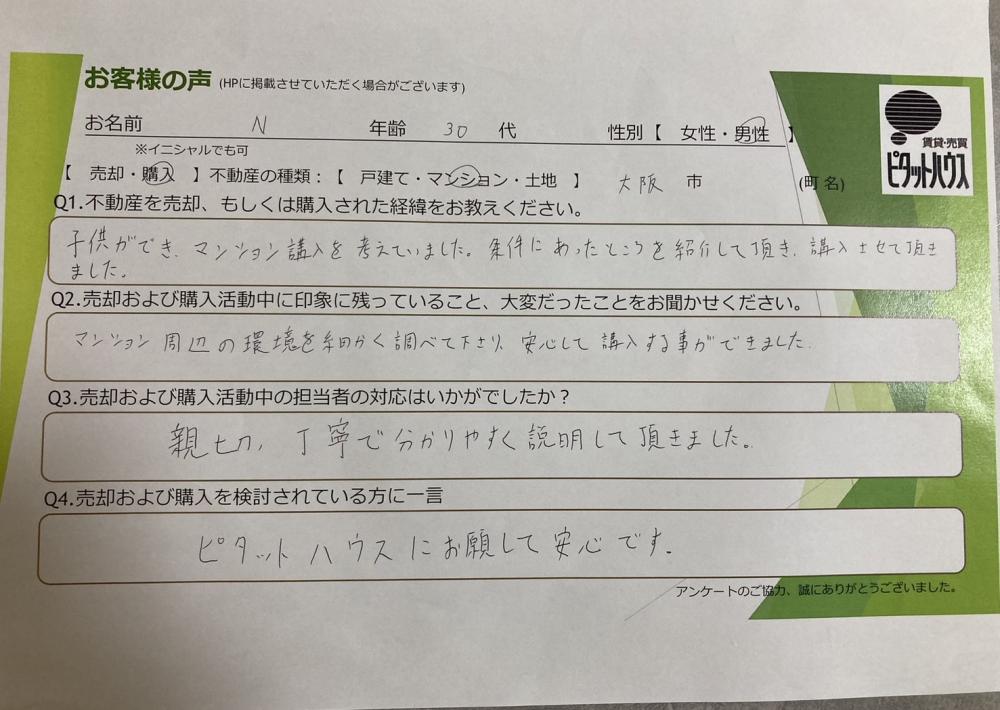 お客様の声 (HPに掲載させていただく場合がございます)
お名前 N 年齢 30 代 性別【 女性・男性 】
※イニシャルでも可
賃貸・売買
ピタットハウス
【 売却・購入 】不動産の種類：【 戸建て・マンション・土地 】 大阪 市 (町名)
Q1.不動産を売却、もしくは購入された経緯をお教えください。
子供ができ、マンション講入を考えていました。条件にあったところを紹介して頂き、講入させて頂き
ました。
Q2.売却および購入活動中に印象に残っていること、大変だったことをお聞かせください。
マンション周辺の環境を細かく調べて下さり、安心して講入する事ができました。
Q3.売却および購入活動中の担当者の対応はいかがでしたか？
親切、丁寧で分かりやすく説明して頂きました。
Q4.売却および購入を検討されている方に一言
ピタットハウスにお願して安心です。
アンケートのご協力、誠にありがとうございました。